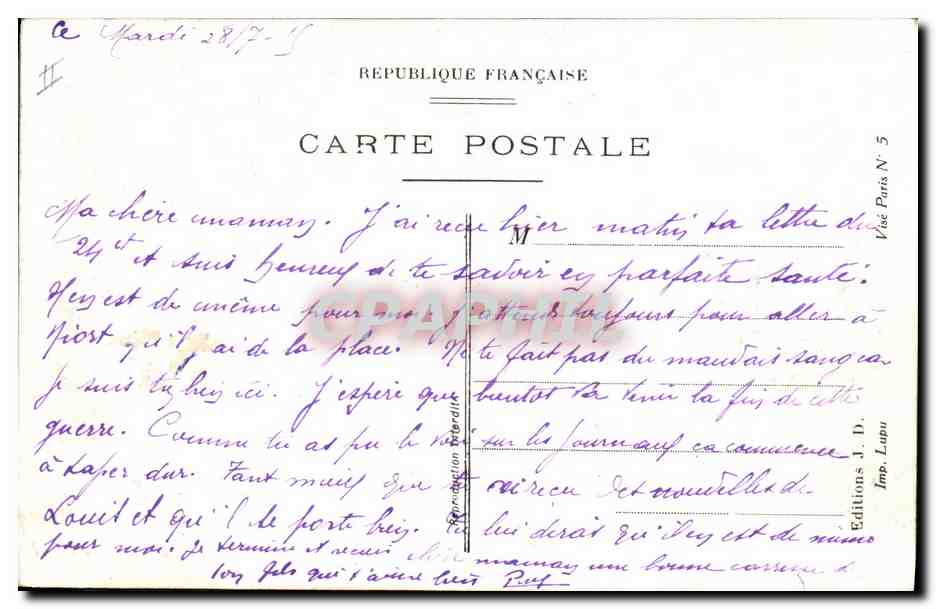 Ce Mardi 28/7-15
II
REPUBLIQUE FRANÇAISE
CARTE POSTALE
Ma chère maman. J'ai reçu hier matin ta lettre du
24 et et suis heureux de te savoir en parfaite santé.
Il en est de même pour moi j'attends toujours pour aller à
Niort qu'il y ai de la place. Ne te fait pas du mauvais sang car
Je suis très bien ici. J'espère que bientot va venir la fin de cette
guerre. Comme tu as pu le voir sur les journaux ca commence
à taper dur. Tant mieux que tu ai recu des nouvelles de
Louis et qu'il se porte bien. Tu lui dirais qu'il en est de même
pour moi. Je termine et recois chère maman une bonne caresse de
ton fils qui t'aime bien
M
CPAPHIL
Reproduction Interdite
Editions J. D.
Visé Paris N° 5
Imp. Lapu